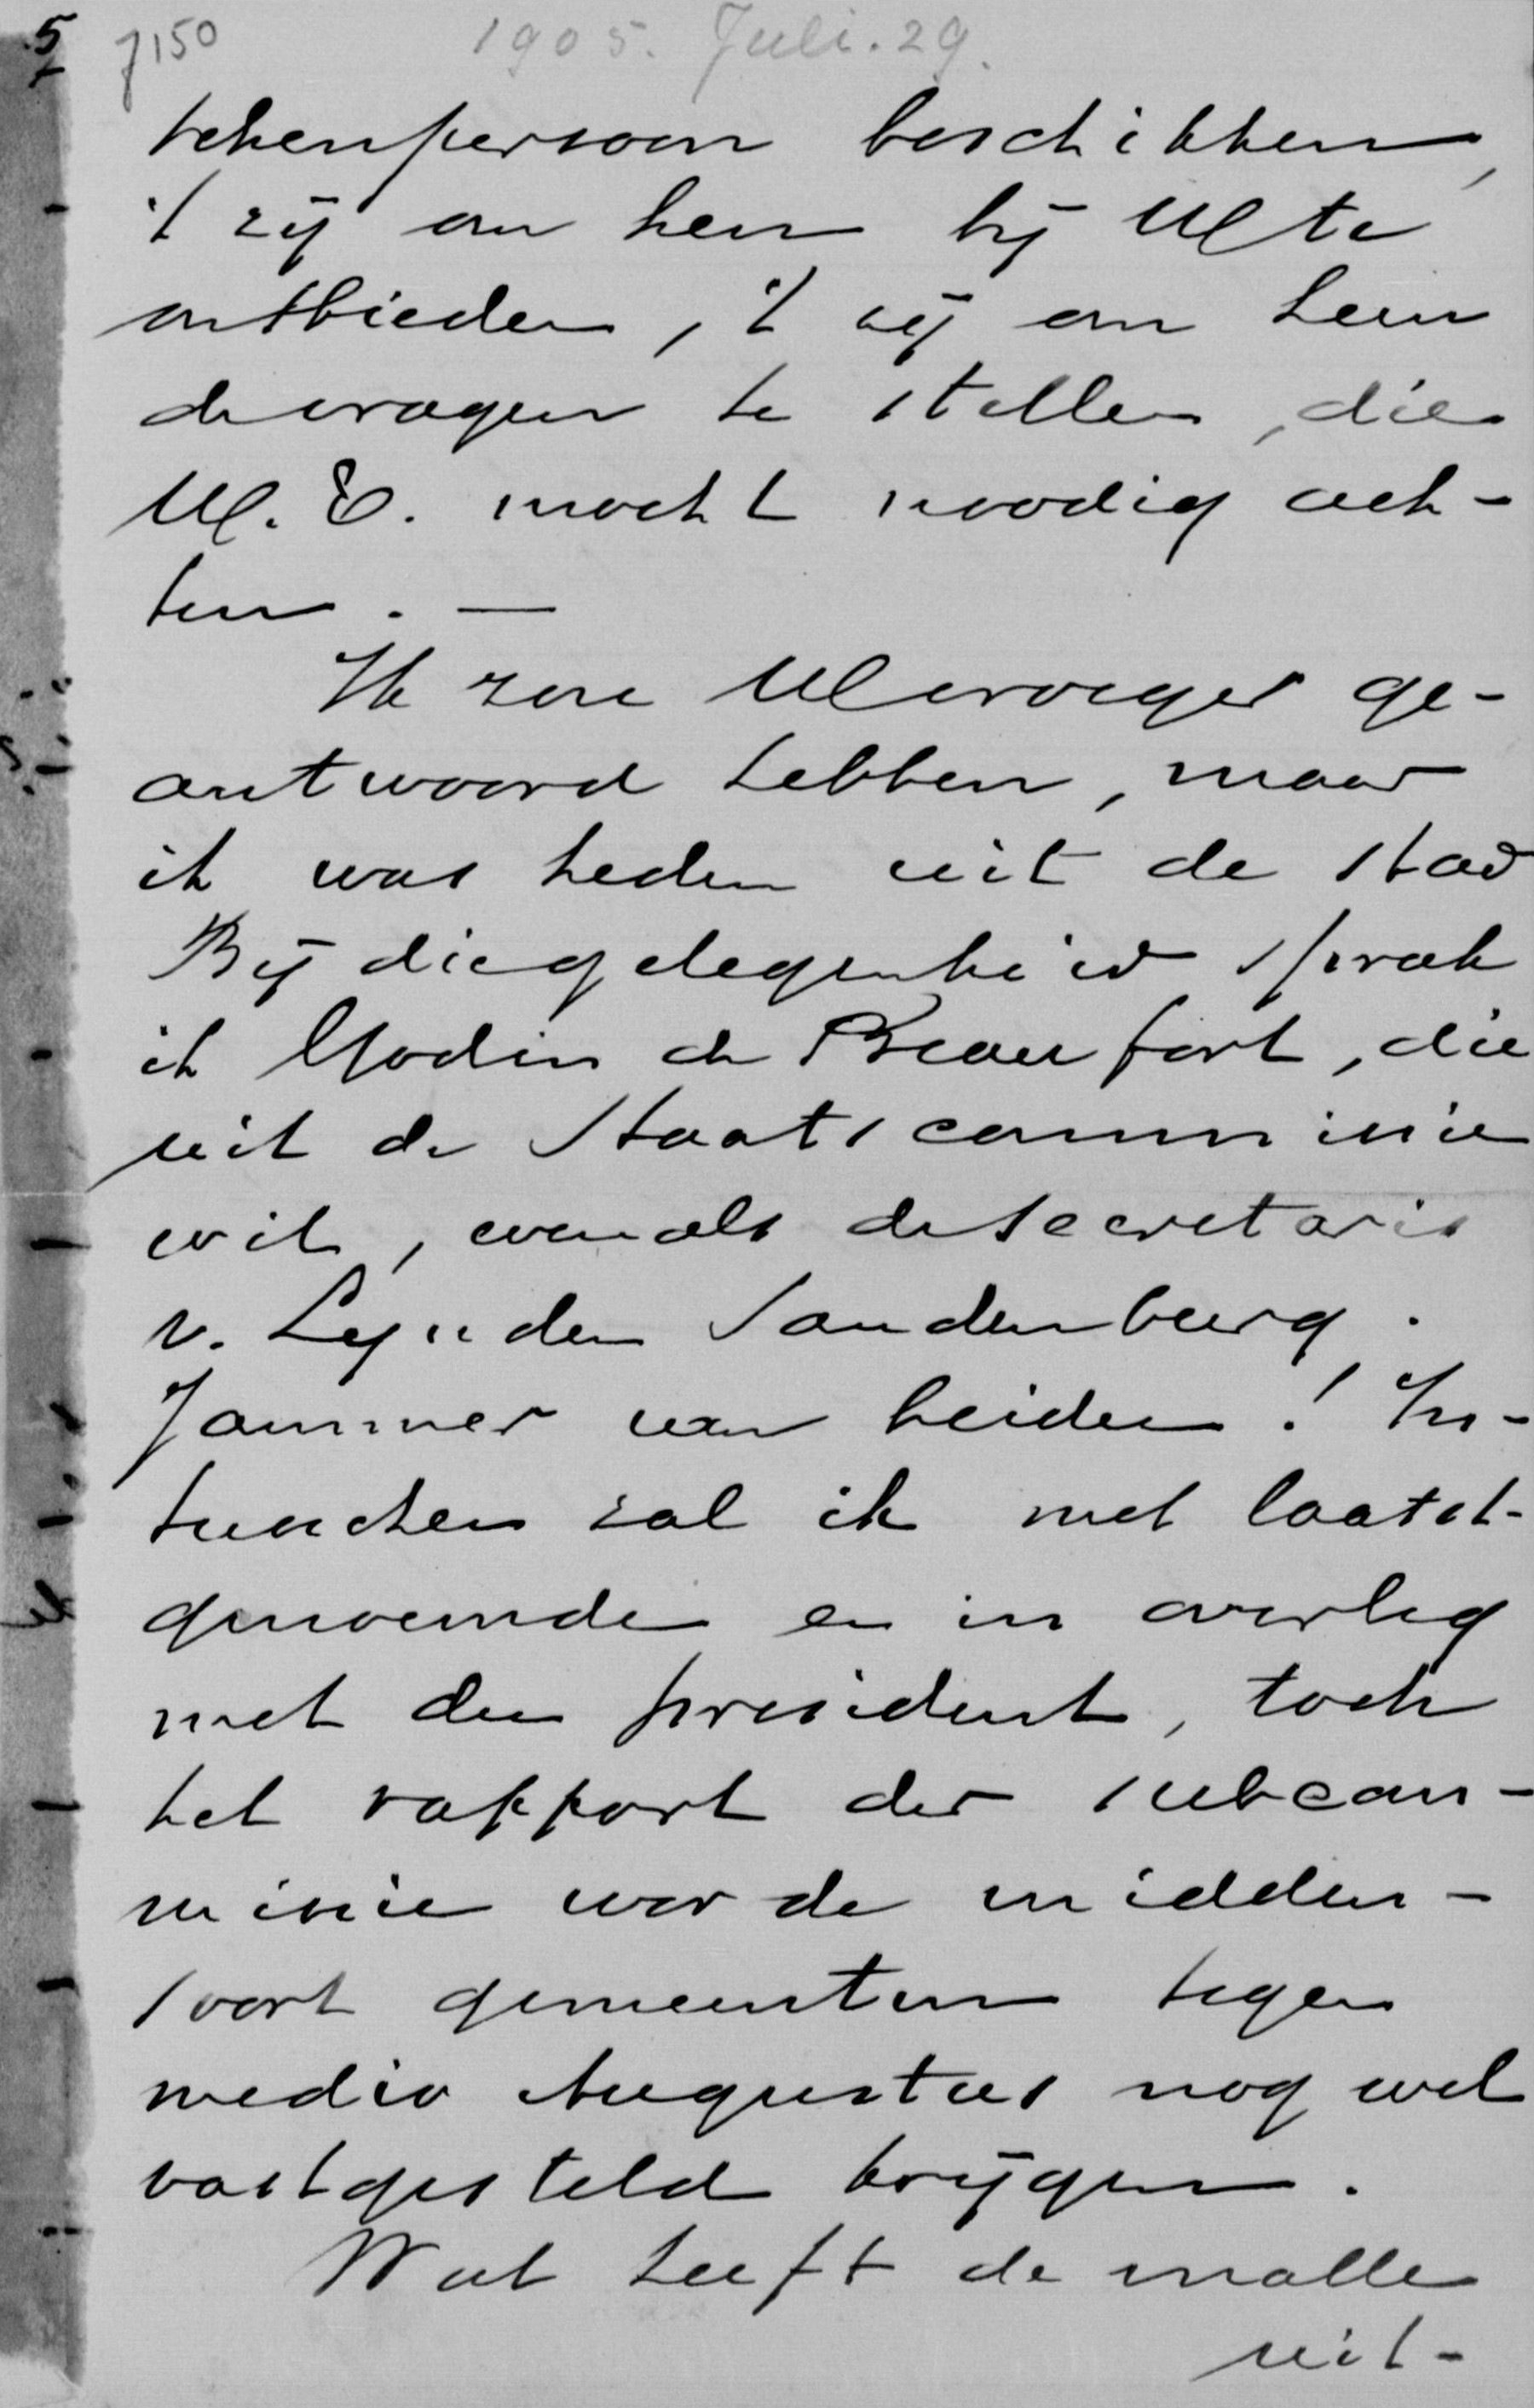 7150 1905. Juli. 29.
tekenpersoon beschikken,
't zij om hem bij UE te
ontbieden, 't zij om hem
de vragen te stellen, die
U.E. mocht noodig ach-
ten. —
Ik zou UE vroeger ge-
antwoord hebben, maar
ik was heden uit de stad
Bij die gelegenheid sprak
ik Godin de Beaufort, die
uit de Staatscommissie
wil, evenals de secretaris
v. Lynden Sandenburg.
Jammer van beiden! In-
tusschen zal ik met laatst-
genoemde en in overleg
met den president, toch
het rapport der subcom-
missie voor de midden-
soort gemeenten tegen
medio Augustus nog wel
vastgesteld krijgen.
Wat heeft de malle
uit-